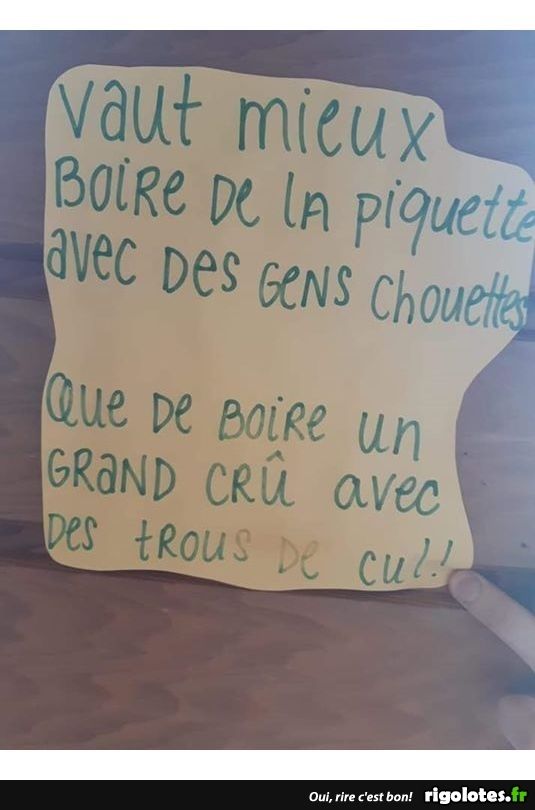 Vaut mieux
Boire de la piquette
avec des gens chouettes
Que de boire un
grand crû avec
des trous de cul!!
Oui, rire c'est bon! rigolotes.fr